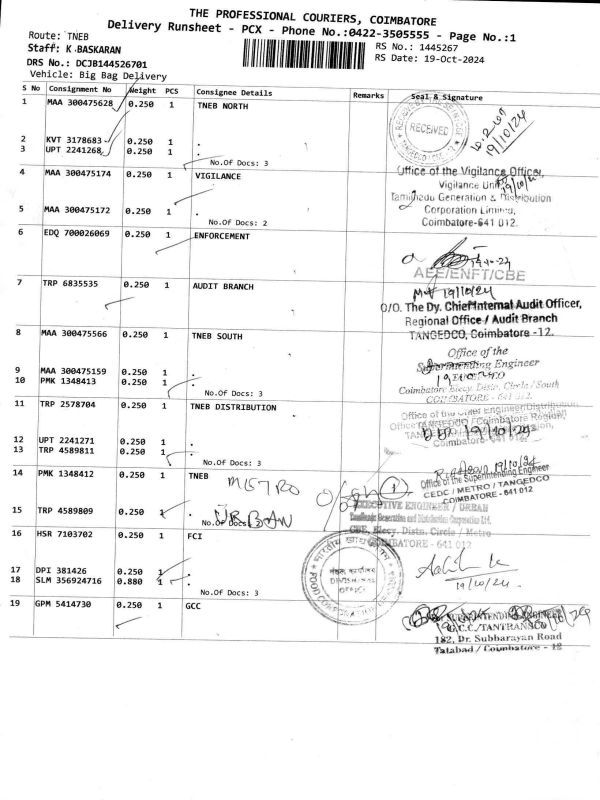 THE PROFESSIONAL COURIERS, COIMBATORE
Delivery Runsheet - PCX - Phone No.:0422-3505555 - Page No.:1
Route: TNEB
RS No.: 1445267
Staff: K BASKARAN
RS Date: 19-Oct-2024
DRS No.: DCJB144526701
Vehicle: Big Bag Delivery
S No Consignment No Weight PCS Consignee Details Remarks Seal & Signature
1 MAA 300475628 0.250 1 TNEB NORTH
RECEIVED
19/10/24
2 KVT 3178683 0.250 1 .
3 UPT 2241268 0.250 1 .
No.Of Docs: 3
4 MAA 300475174 0.250 1 VIGILANCE
Office of the Vigilance Officer,
Vigilance Unit
19/10/24
Tamilnadu Generation & Distribution
5 MAA 300475172 0.250 1 .
Corporation Limited,
No.Of Docs: 2
Coimbatore-641 012.
6 EDQ 700026069 0.250 1 ENFORCEMENT
.
AEE/ENFT/CBE
7 TRP 6835535 0.250 1 AUDIT BRANCH
19/10/24
O/O. The Dy. Chief Internal Audit Officer,
Regional Office / Audit Branch
TANGEDCO, Coimbatore -12.
8 MAA 300475566 0.250 1 TNEB SOUTH
Office of the
Superintending Engineer
9 MAA 300475159 0.250 1 .
10 PMK 1348413 0.250 1 .
Coimbatore Elecy. Distn. Circle / South
No.Of Docs: 3
COIMBATORE - 641 012.
11 TRP 2578704 0.250 1 TNEB DISTRIBUTION
Office of the Chief Engineer/Distribution
TANGEDCO / Coimbatore Region,
19/10/24
Coimbatore-641 012.
12 UPT 2241271 0.250 1 .
13 TRP 4589811 0.250 1 .
No.Of Docs: 3
14 PMK 1348412 0.250 1 TNEB
19/10/24
Office of the Superintending Engineer
CEDC / METRO / TANGEDCO
COIMBATORE - 641 012
METRO
1
15 TRP 4589809 0.250 1 .
No.Of Docs
URBAN
EXECUTIVE ENGINEER / URBAN
Tamilnadu Generation and Distribution Corporation Ltd.
CBE, Elecy. Distn. Circle / Metro
COIMBATORE - 641 012
16 HSR 7103702 0.250 1 FCI
17 DPI 381426 0.250 1 .
18 SLM 356924716 0.880 1 .
No.Of Docs: 3
19/10/24
19 GPM 5414730 0.250 1 GCC
SUPERINTENDING ENGINEER
G.C.C./TANTRANSCO
182, Dr. Subbarayan Road
Tatabad / Coimbatore - 12